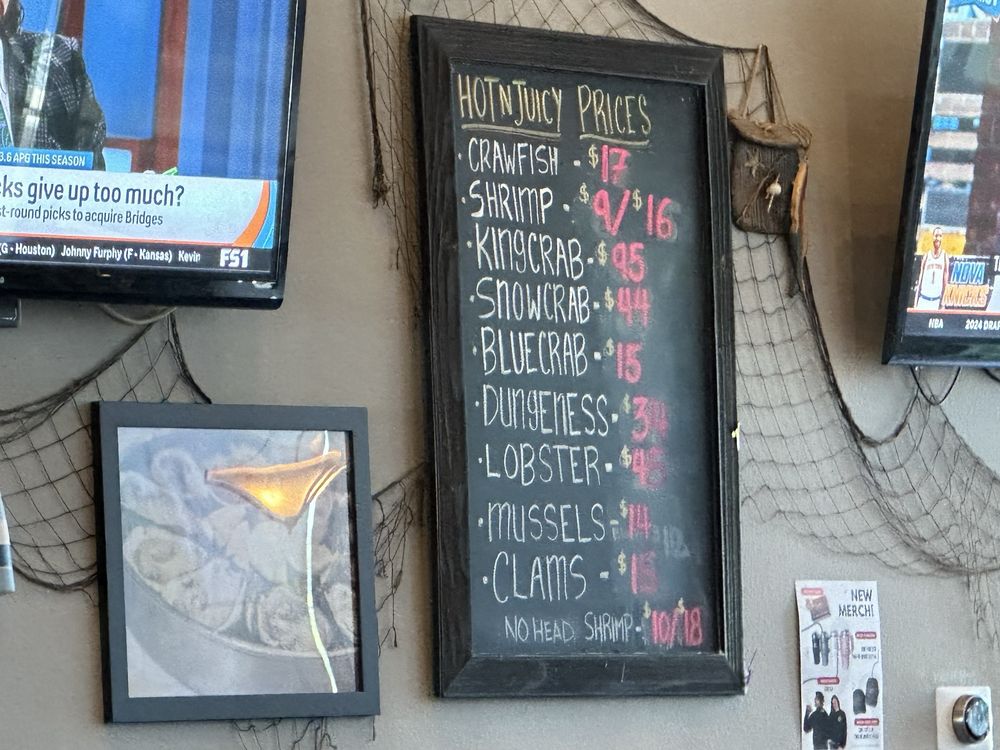 3.6 APG THIS SEASON
cks give up too much?
st-round picks to acquire Bridges
(G - Houston) Johnny Furphy (F - Kansas) Kevin
FS1
HOT N JUICY PRICES
• CRAWFISH - $17
• SHRIMP - $9/$16
• KINGCRAB - $95
• SNOWCRAB - $44
• BLUECRAB - $15
• DUNGENESS - 
• LOBSTER - 
• MUSSELS - $14
• CLAMS - 
NO HEAD SHRIMP - $10/$18
NOVA
KNICKS
NBA 2024 DRAF
NEW
MERCH!